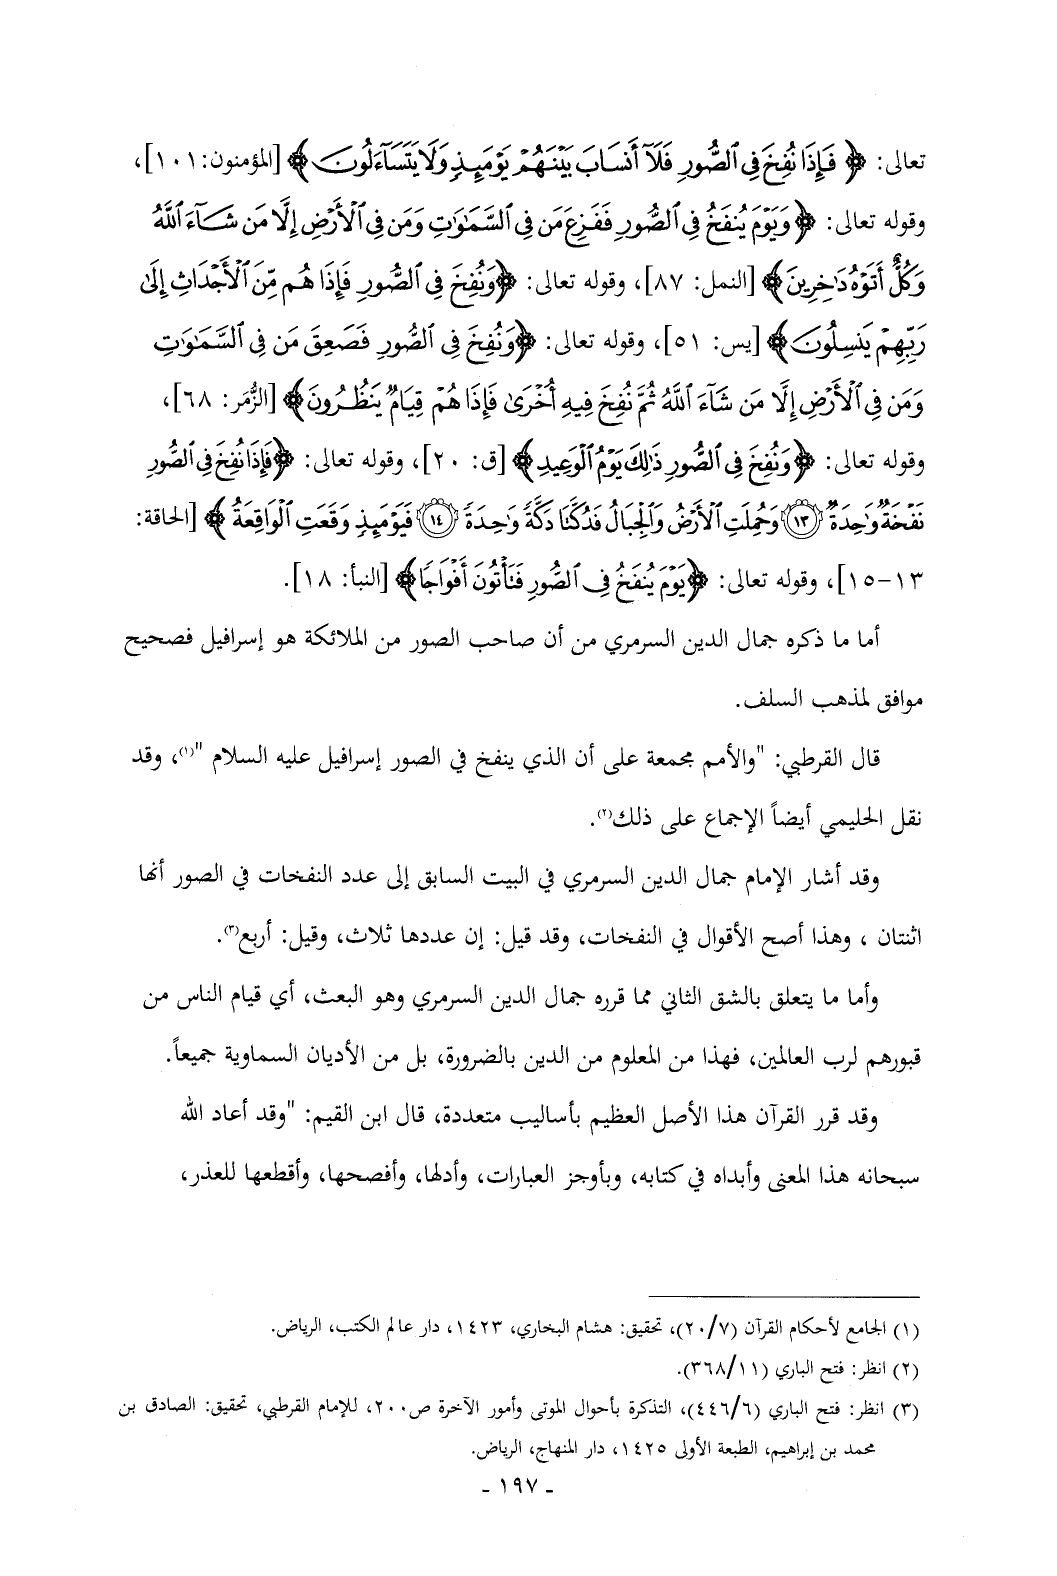 تعالى: ﴿ فَإِذَا نُفِخَ فِي ٱلصُّورِ فَلَآ أَنسَابَ بَيْنَهُمْ يَوْمَئِذٍ وَلَا يَتَسَآءَلُونَ ﴾ [المؤمنون: ١٠١]،
وقوله تعالى: ﴿وَيَوْمَ يُنفَخُ فِي ٱلصُّورِ فَفَزِعَ مَن فِي ٱلسَّمَٰوَٰتِ وَمَن فِي ٱلْأَرْضِ إِلَّا مَن شَآءَ ٱللَّهُ
وَكُلٌّ أَتَوْهُ دَٰخِرِينَ﴾ [النمل: ٨٧]، وقوله تعالى: ﴿وَنُفِخَ فِي ٱلصُّورِ فَإِذَا هُم مِّنَ ٱلْأَجْدَاثِ إِلَىٰ
رَبِّهِمْ يَنسِلُونَ﴾ [يس: ٥١]، وقوله تعالى: ﴿وَنُفِخَ فِي ٱلصُّورِ فَصَعِقَ مَن فِي ٱلسَّمَٰوَٰتِ
وَمَن فِي ٱلْأَرْضِ إِلَّا مَن شَآءَ ٱللَّهُ ثُمَّ نُفِخَ فِيهِ أُخْرَىٰ فَإِذَا هُمْ قِيَامٌ يَنظُرُونَ﴾ [الزُّمَر: ٦٨]،
وقوله تعالى: ﴿وَنُفِخَ فِي ٱلصُّورِ ذَٰلِكَ يَوْمُ ٱلْوَعِيدِ﴾ [ق: ٢٠]، وقوله تعالى: ﴿فَإِذَا نُفِخَ فِي ٱلصُّورِ
نَفْخَةٌ وَٰحِدَةٌ ١٣ وَحُمِلَتِ ٱلْأَرْضُ وَٱلْجِبَالُ فَدُكَّتَا دَكَّةً وَٰحِدَةً ١٤ فَيَوْمَئِذٍ وَقَعَتِ ٱلْوَاقِعَةُ ﴾ [الحاقة:
١٣-١٥]، وقوله تعالى: ﴿يَوْمَ يُنفَخُ فِي ٱلصُّورِ فَتَأْتُونَ أَفْوَاجًا﴾ [النبأ: ١٨].
أما ما ذكره جمال الدين السرمري من أن صاحب الصور من الملائكة هو إسرافيل فصحيح
موافق لمذهب السلف.
قال القرطبي: "والأمم مجمعة على أن الذي ينفخ في الصور إسرافيل عليه السلام "(١)، وقد
نقل الحليمي أيضاً الإجماع على ذلك(٢).
وقد أشار الإمام جمال الدين السرمري في البيت السابق إلى عدد النفخات في الصور أنها
اثنتان ، وهذا أصح الأقوال في النفخات، وقد قيل: إن عددها ثلاث، وقيل: أربع(٣).
وأما ما يتعلق بالشق الثاني مما قرره جمال الدين السرمري وهو البعث، أي قيام الناس من
قبورهم لرب العالمين، فهذا من المعلوم من الدين بالضرورة، بل من الأديان السماوية جميعاً.
وقد قرر القرآن هذا الأصل العظيم بأساليب متعددة، قال ابن القيم: "وقد أعاد الله
سبحانه هذا المعنى وأبداه في كتابه، وبأوجز العبارات، وأدلها، وأفصحها، وأقطعها للعذر،
(١) الجامع لأحكام القرآن (٢٠/٧)، تحقيق: هشام البخاري، ١٤٢٣، دار عالم الكتب، الرياض.
(٢) انظر: فتح الباري (٣٦٨/١١).
(٣) انظر: فتح الباري (٤٤٦/٦)، التذكرة بأحوال الموتى وأمور الآخرة ص٢٠٠، للإمام القرطبي، تحقيق: الصادق بن
محمد بن إبراهيم، الطبعة الأولى ١٤٢٥، دار المنهاج، الرياض.
- ١٩٧ -